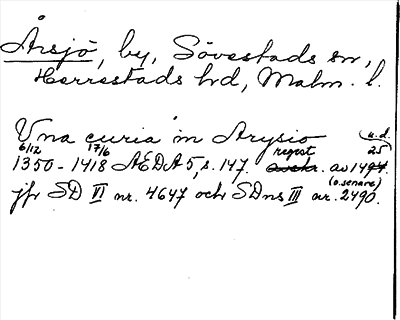 Årsjö, by, Sövestads sn,
Herrestads hd, Malm. l.
Una curia in Arysio (u.d.
6/12 17/6 regest 25)
1350-1418 ÆDA 5, s. 147. avskr. av 1494.
(o. senare)
jfr SD VI nr. 4647 och SDns III nr. 2490.